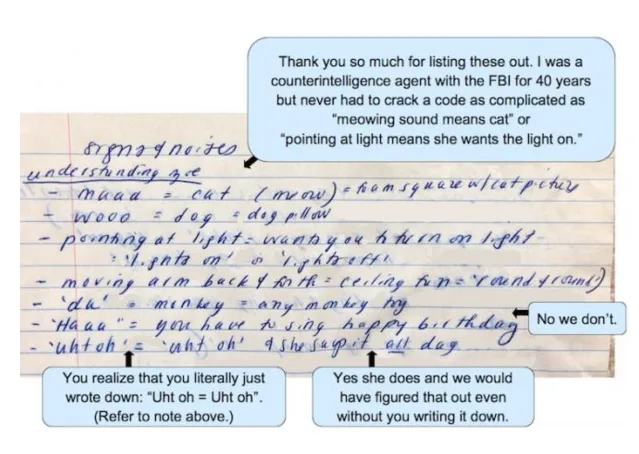 Thank you so much for listing these out. I was a
counterintelligence agent with the FBI for 40 years
but never had to crack a code as complicated as
“meowing sound means cat” or
“pointing at light means she wants the light on.”
signs & noises
understanding zoe
- maaa = cat (meow) = foam square w/ cat picture
- wooo = dog = dog pillow
- pointing at light = wants you to turn on light
= 'lights on' or 'lights off'
- moving arm back & forth = ceiling fan = 'round & round')
- 'da' = monkey = any monkey toy
- "Haaa" = you have to sing happy birthday
No we don't.
- 'uht oh' = 'uht oh' & she says it all day
You realize that you literally just
wrote down: “Uht oh = Uht oh”.
(Refer to note above.)
Yes she does and we would
have figured that out even
without you writing it down.